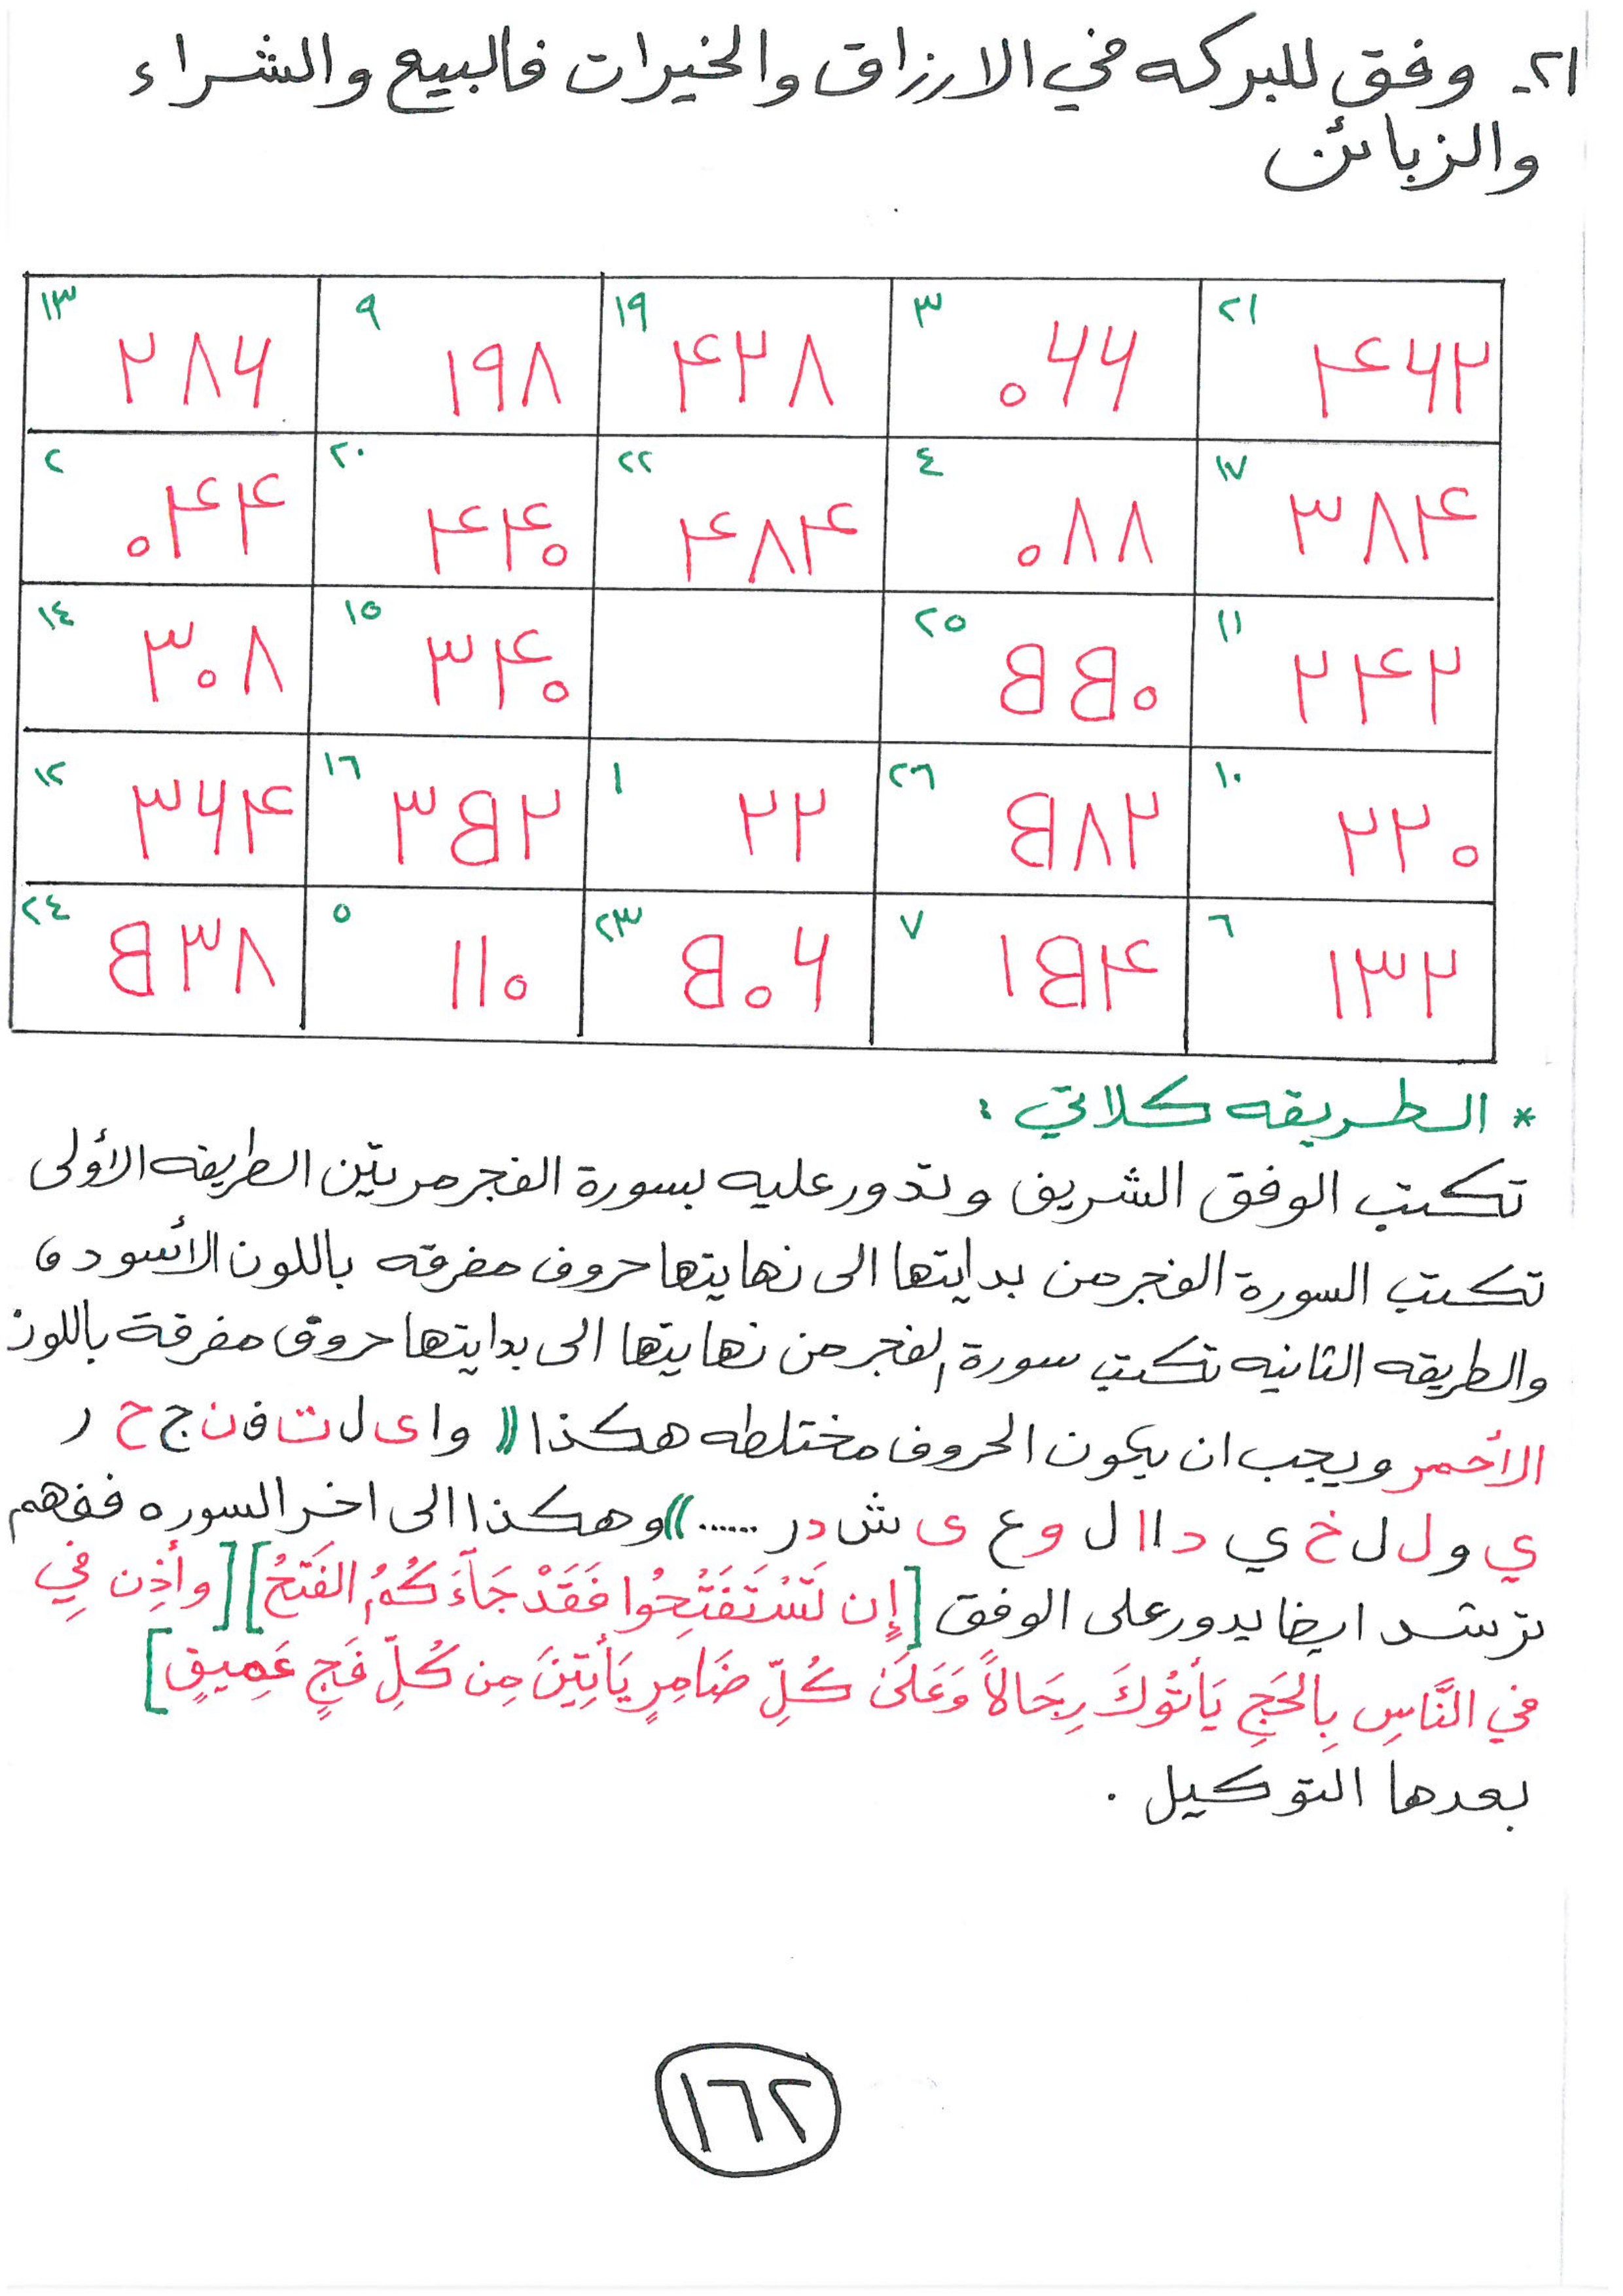 ٢١. وفق للبركه في الارزاق والخيرات فالبيع والشراء
والزبائن
٢١ ٣ ١٩ ٩ ١٣
۴۶٢ ٠۶۶ ۴٢٨ ١٩٨ ٢٨۶
١٧ ٤ ٢٢ ٢٠ ٢
٣٨۴ ٠٨٨ ۴٨۴ ۴۴٠ ٠۴۴
١١ ٢٥ ١٥ ١٤
٢۴٢ BB٠ ٣۴٠ ٣٠٨
١٠ ٢٦ ١ ١٦ ١٢
٢٢٠ B٨٢ ٢٢ ٣B٢ ٣۶۴
٦ ٧ ٢٣ ٥ ٢٤
١٣٢ ١B۴ B٠۶ ١١٠ B٣٨
* الطريقه كلاتي :
تكتب الوفق الشريف وتدور عليه بسورة الفجر مرتين الطريقه الأولى
تكتب السورة الفجر من بدايتها الى نهايتها حروف مفرقه باللون الأسود و
والطريقه الثانيه تكتب سورة الفجر من نهايتها الى بدايتها حروف مفرقة باللون
الأحمر ويجب ان يكون الحروف مختلطه هكذا (( و ا ى ل ت ف ن ج ح ر
ي و ل ل خ ي د ا ا ل و ع ى ش د ر ......)) وهكذا الى اخر السوره ففهم
ترشد ايضا يدور على الوفق [إِن تَسْتَفْتِحُوا فَقَدْ جَاءَكُمُ الفَتْحُ] [وأَذِن فِي
في النَّاسِ بِالحَجِ يَأتُوكَ رِجَالاً وَعَلَى كُلِّ ضَامِرٍ يَأتِينَ مِن كُلِّ فَجٍ عَمِيقٍ]
بعدها التوكيل .
١٦٢